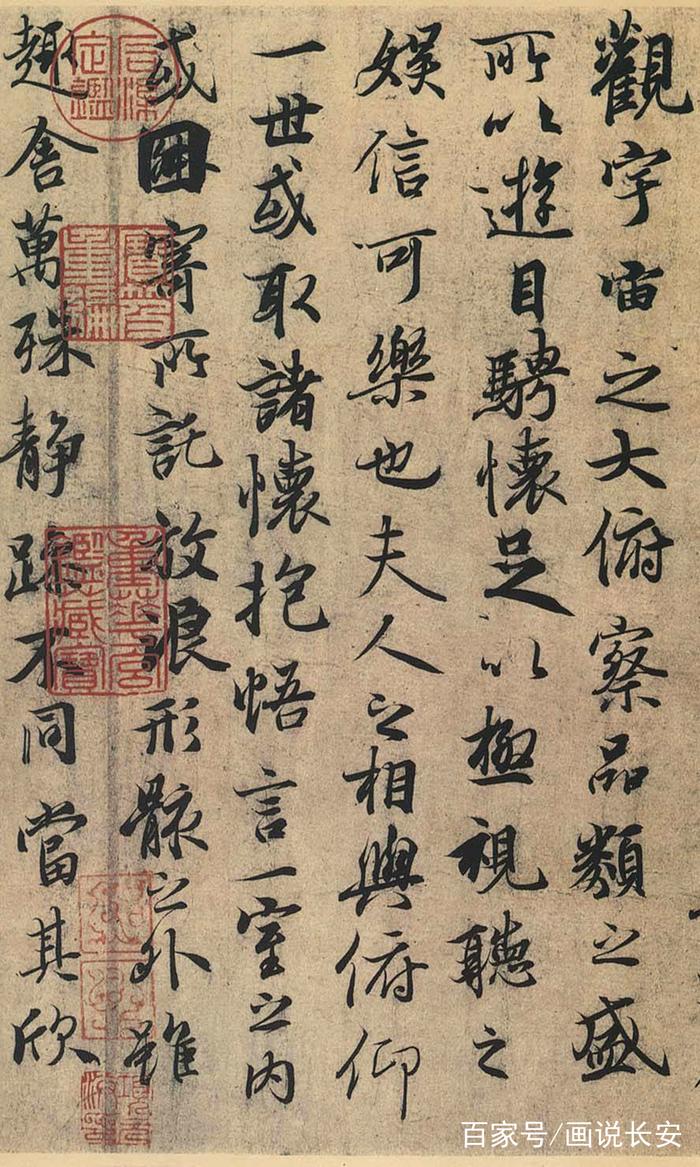 觀宇宙之大俯察品類之盛
所以遊目騁懷足以極視聽之
娛信可樂也夫人之相與俯仰
一世或取諸懷抱悟言一室之內
或因寄所託放浪形骸之外雖
趣舍萬殊靜躁不同當其欣
石渠定鑑
寶笈重編
重華宮鑑藏寶
百家号/画说长安